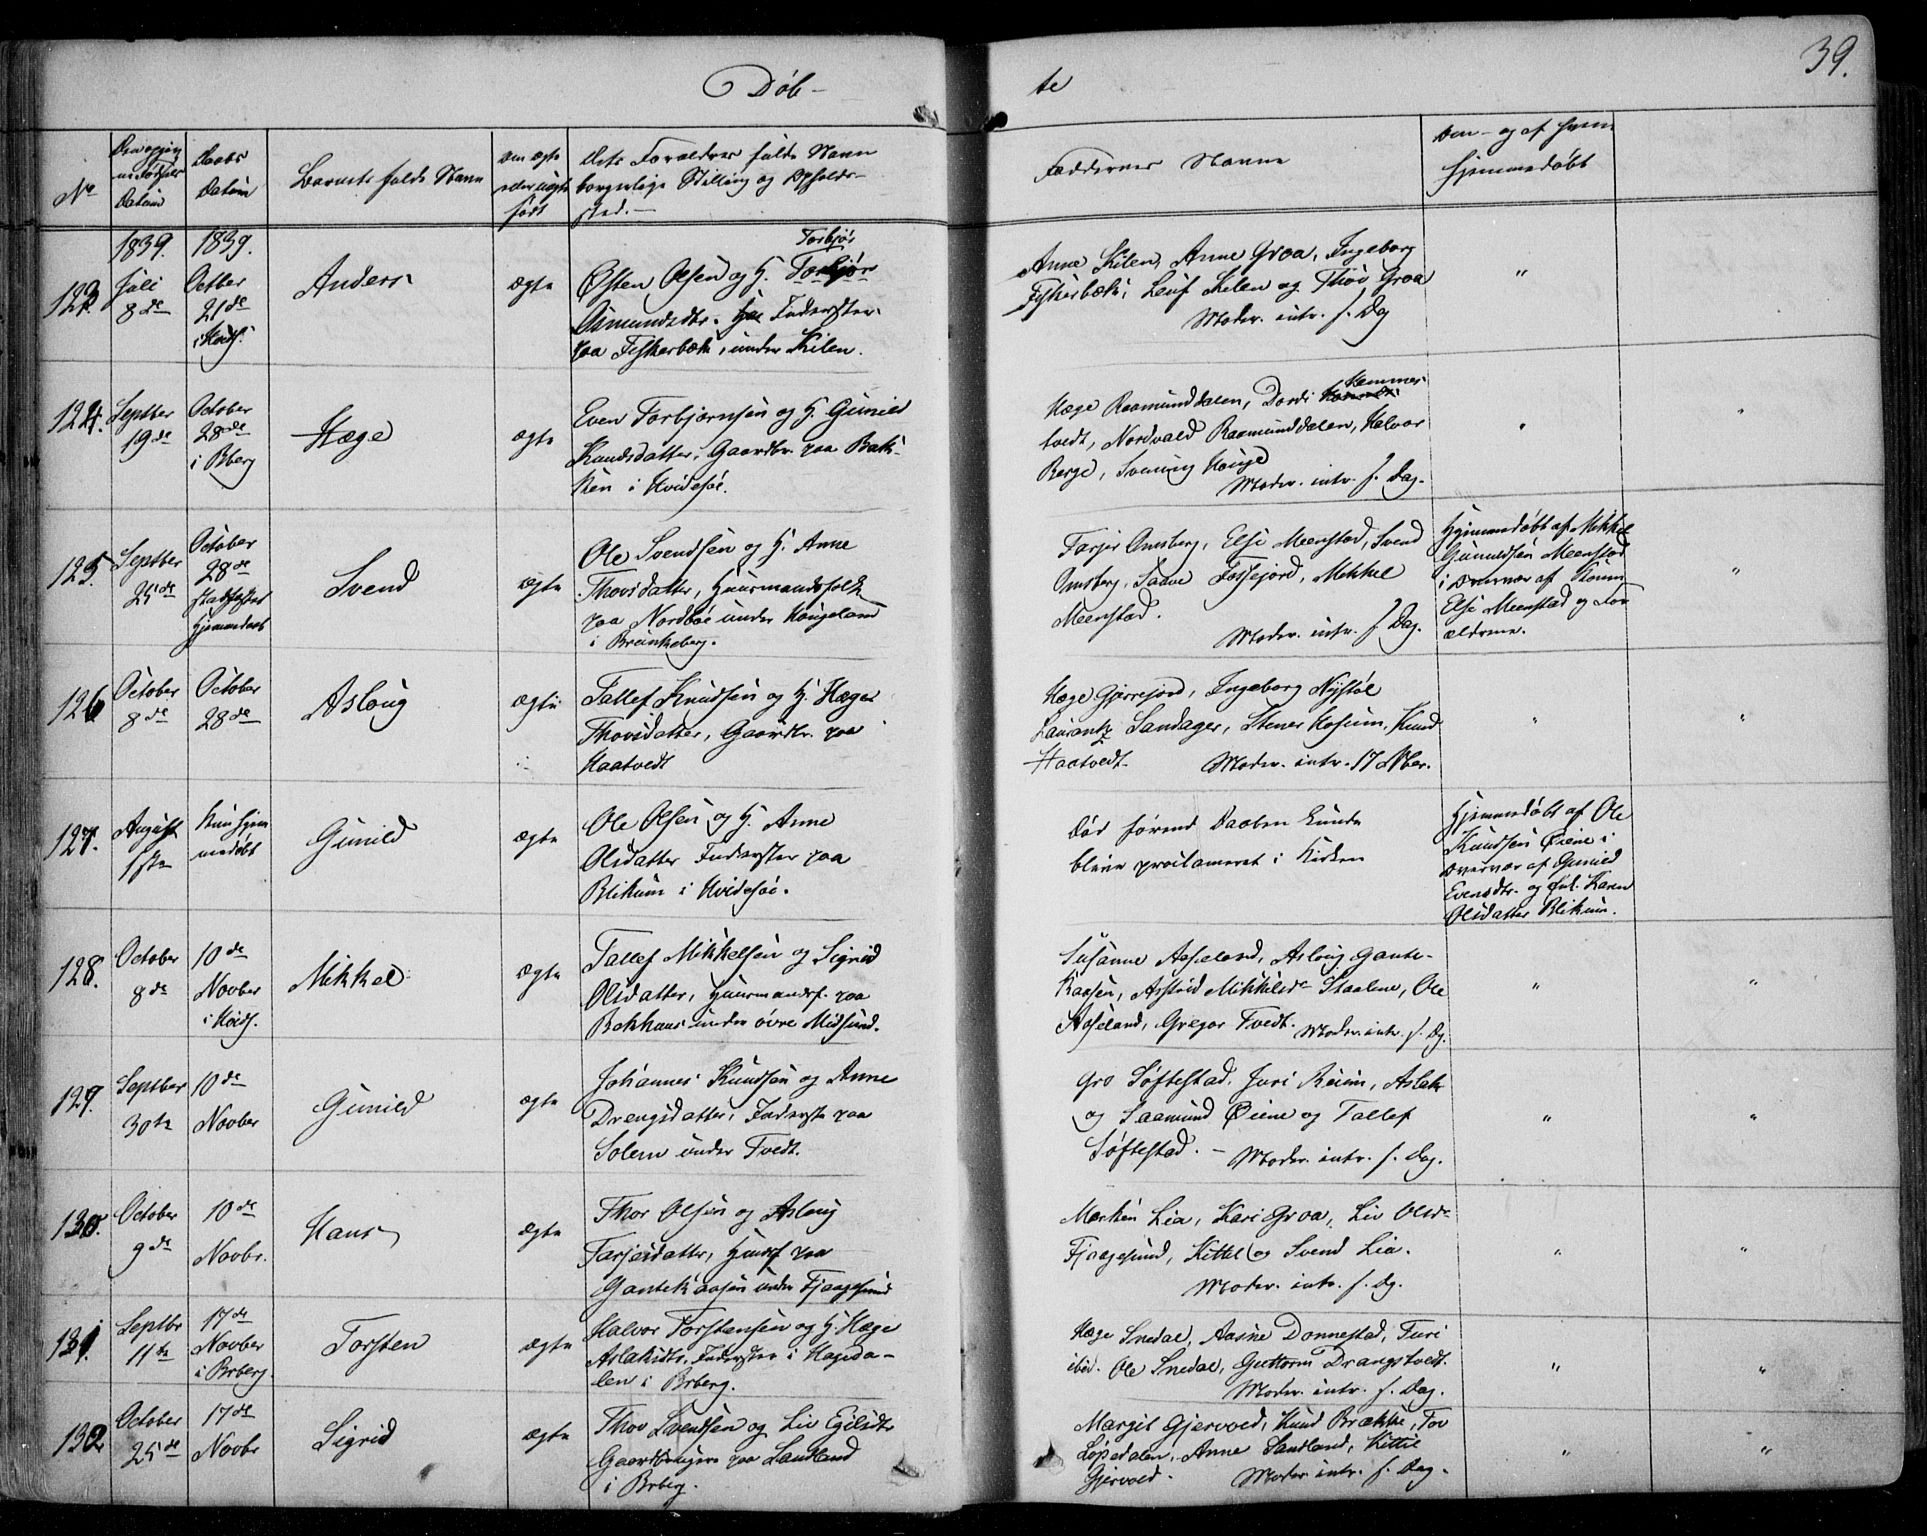 39.
Døb- te
No
Datum
Daabs
Datum
Barnets fulde Navn
Om ægte
eller uægte
født
Dets Forældres fulde Navn
borgerlige Stilling og Opholds-
sted.
Faddernes Navne
Om- og af hvem
hjemmedøbt
1839.
1839.
123
Juli
8de
Octber
21de
i Hvids.
Anders
ægte
Torbjør
Østen Olsen og H.
Asmundsdtr. Inderster
paa Fiskerbæk, under Kilen.
Anne Kilen, Anne Groa, Ingeborg
Fiskerbæk, Leuf Kilen og Thov Groa
Moder. intr. s. Dag
"
124.
Septber
19de
October
28de
i Bberg
Hæge
ægte
Even Torbjornsen og H. Gunild
Knudsdatter, Gaardbr. paa Bak-
ken i Hvidesøe.
Kemmes-
Hæge Raamunddalen, Dordi
tvedt, Nordvald Raamunddalen, Halvor
Berge, Svenung Houge
Moder. intr. s. Dag.
"
"
125.
Septber
25de
October
28de
stadfæstet
Hjemmedaab
Svend
ægte
Ole Svendsen og H. Anne
Thovsdatter, Huusmandsfolk
paa Nordbøe under Haugeland
i Brunkeberg.
Tarjer Omsberg, Else Meenstad, Svend
Omsberg, Saave Fossejord, Mekkel
Meenstad.
Moder. intr. s. Dag.
Hjemmedøbt af Mikkel
Gunuldsen Meenstad
i Overvær af
Else Meenstad og For-
ældrene.
"
126
October
8de
October
28de
Aslaug
ægte
Tallef Knudsen og H. Hæge
Thovsdatter, Gaardbr. paa
Haatvedt
Hæge Gjerrejord, Ingeborg Nystøl
Laurantz Sandager, Stener Hosum, Knud
Haatvedt. Moder. intr. 17 Nber.
"
"
127.
August
1ste
Kun hjem
medøbt
Gunild
ægte
Ole Olsen og H. Anne
Olsdatter Inderster paa
Blikum i Hvidesøe.
Død førend Daaben kunde
blive proclameret i Kirken
Hjemmedøbt af Ole
Knudsen Øiene i
Overvær af Gunild
Evensdtr. og Karen
Olsdatter Blikum.
128.
October
8de
10de
Novber
i Hvids.
Mikkel
ægte
Tallef Mikkelsen og Sigrid
Olsdatter, Huusmandsf. paa
Bakhaus under øvre Midsund.
Susanne Aaseland, Aslaug Gante-
kaasen, Asstrid Mikkelsdr Staalene, Ole
Aaseland, Gregar Tvedt. Moder. intr. s. Dg.
"
"
129.
Septber
30te
10de
Novber
Gunild
ægte
Johannes Knudsen og Anne
Drengsdatter, Inderste paa
Solem under Tvedt.
Gro Søftestad, Juri Reium, Aslak
og Saamund Øiene og Tallef
Søftestad. - Moder. intr. s. Dag.
"
"
130.
October
9de
10de
Novbr.
Hans
ægte
Thor Olsen og Aslaug
Tarjeisdatter, Huusf paa
Gantekaasen under Fjaagesund
Marken Lia, Kari Groa, Liv Olsdr
Fjaagesund, Kittel og Svend Lia.
Moder. intr. s. Dg.
"
"
131.
Septbr
11te
17de
Novber
i Brberg
Torsten
ægte
Halvor Torstensen og H. Hæge
Aslaksdtr. Inderster i Hageda-
len i Brberg.
Hæge Snedal, Aasne Donnestad, Turi
ibid. Ole Snedal, Guttorm Drangstvedt.
Moder. intr. s. Dag.
"
"
132
October
25de
17de
Novbr
Sigrid
ægte
Thov Svendsen og Liv Egilsdtr
Gaardbrugere paa Landland
i Brberg.
Margit Gjervold, Knud Brække, Tov
Løpedalen, Anne Sandland, Kittil
Gjervold. Moder. intr. s. Dag.
"
"